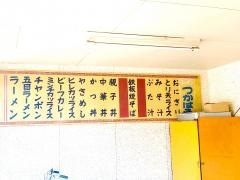 おにぎり
とり天ライス
みそ汁
ぶた汁
鉄板焼そば
親子丼
中華丼
かつ丼
やきめし
ヒレカツライス
ビーフカレー
ミンチカツライス
チャンポン
五目ラーメン
ラーメン